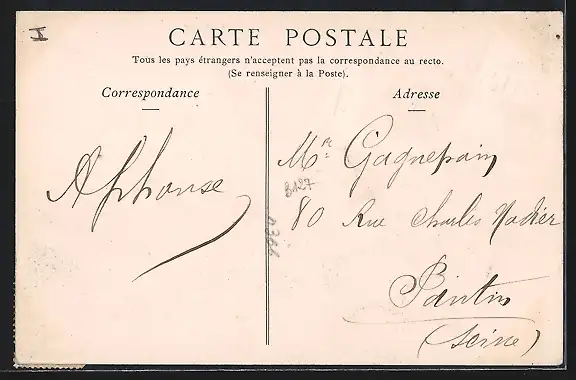 CARTE POSTALE
Tous les pays étrangers n'acceptent pas la correspondance au recto.
(Se renseigner à la Poste).
Correspondance
Adresse
Alphonse
Mr Gagnepain
80 Rue Charles Nodier
Pantin
(Seine)
B127